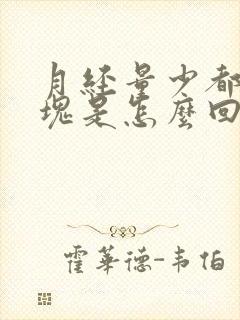 月经量少都
塊是怎麼回
霍華德-韦伯